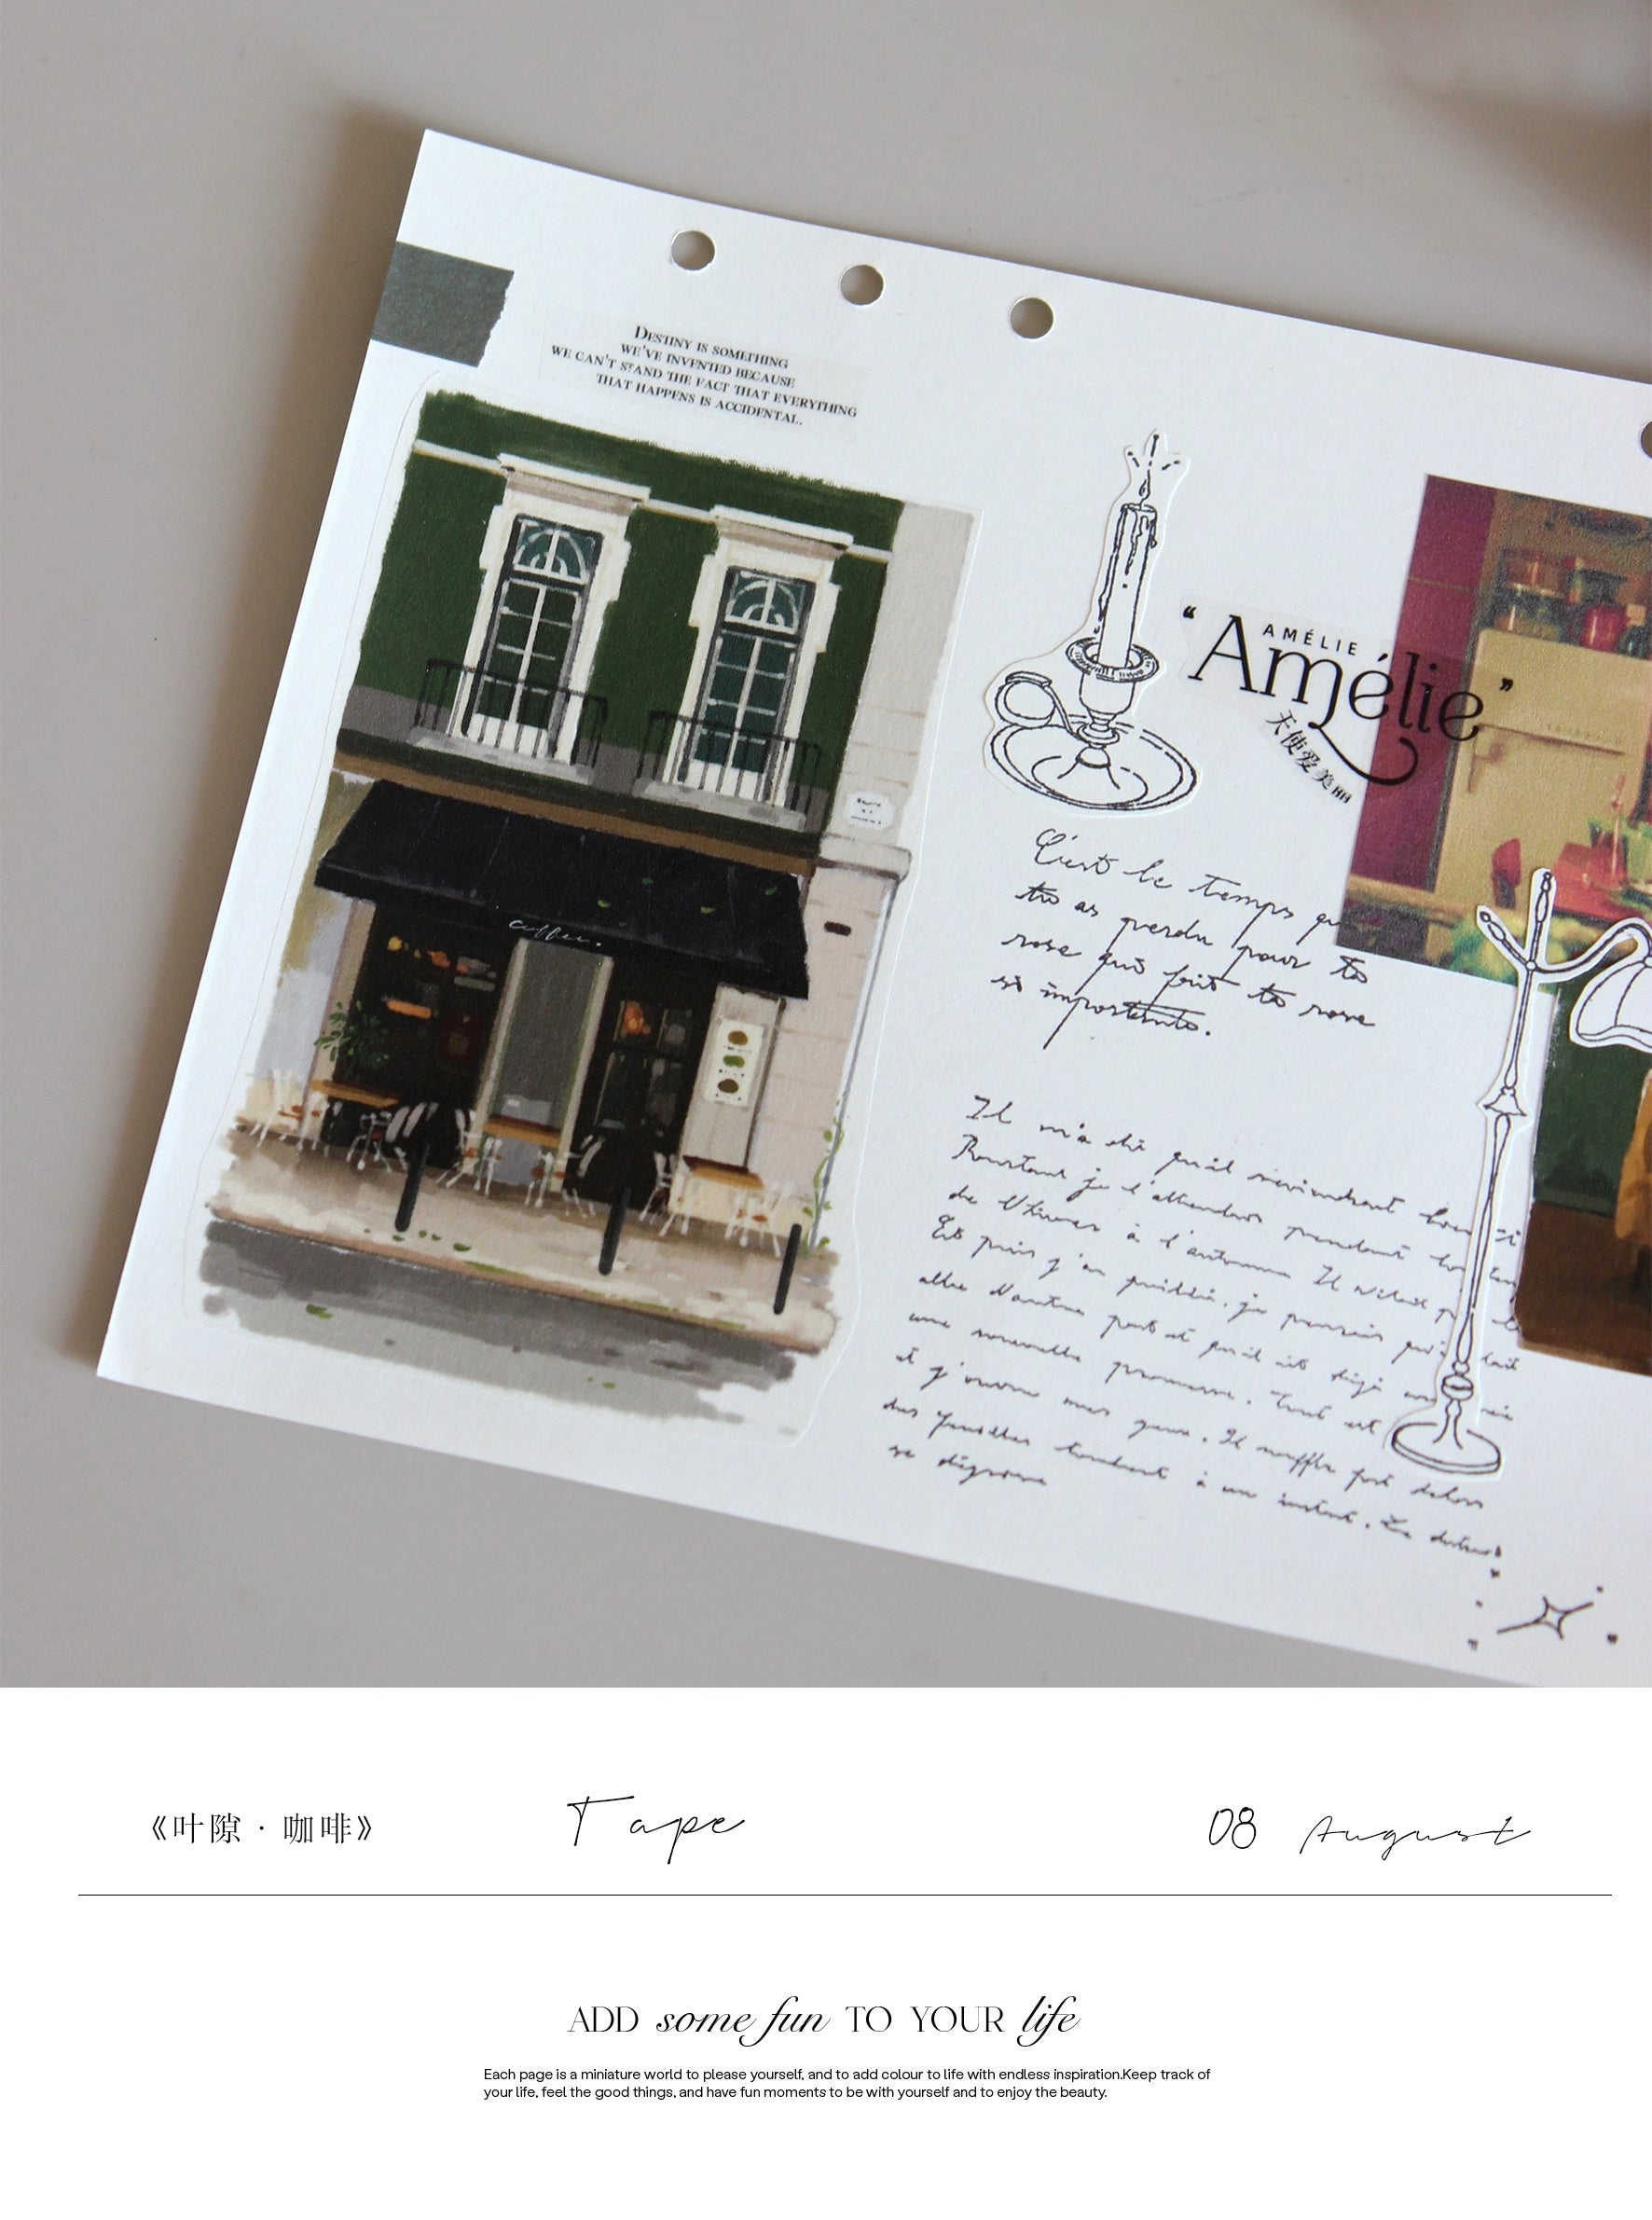 DESTINY IS SOMETHING
WE'VE INVENTED BECAUSE
WE CAN'T STAND THE FACT THAT EVERYTHING
THAT HAPPENS IS ACCIDENTAL.
coffee.
AMÉLIE
“Amélie”
天使爱美丽
C'est le temps que
tu as perdu pour ta
rose qui fait ta rose
si importante.
Il m'a dit qu'il reviendrait
Pourtant je l'attendais pendant
de l'hiver à l'automne Il n'était
Et puis j'ai oublié, je pensais
aller d'autre part et qu'il ait déjà
une nouvelle promesse. Tout est
et j'ouvre mes yeux. Il souffle fort dehors
des feuilles tombent à un instant. La
se dégrise
《叶隙·咖啡》
Tape
08 August
ADD some fun TO YOUR life
Each page is a miniature world to please yourself, and to add colour to life with endless inspiration.Keep track of
your life, feel the good things, and have fun moments to be with yourself and to enjoy the beauty.